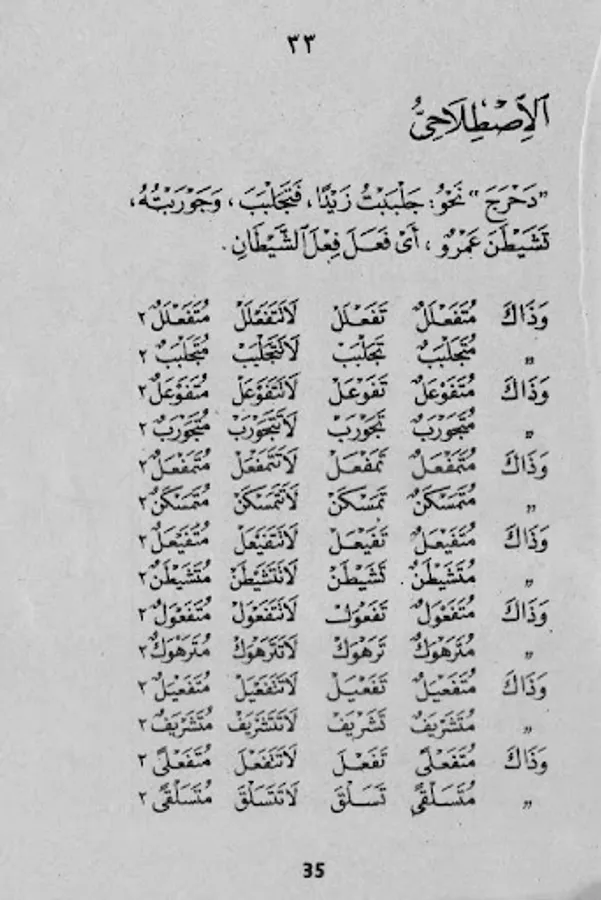 ٣٣
اَلْاِصْطِلَاحِيُّ
”دَحْرَجَ“ نَحْوُ: جَلْبَبْتُ زَيْدًا، فَتَجَلْبَبَ، وَجَوْرَبْتُهُ،
تَشَيْطَنَ عَمْرٌو، أَىْ فَعَلَ فِعْلَ الشَّيْطَانِ.
وَذَاكَ مُتَفَعْلَلٌ تَفَعْلَلْ لَاتَتَفَعْلَلْ مُتَفَعْلَلٌ ٢
„ مُتَجَلْبَبٌ تَجَلْبَبْ لَاتَتَجَلْبَبْ مُتَجَلْبَبٌ ٢
وَذَاكَ مُتَفَوْعَلٌ تَفَوْعَلْ لَاتَتَفَوْعَلْ مُتَفَوْعَلٌ ٢
„ مُتَجَوْرَبٌ تَجَوْرَبْ لَاتَتَجَوْرَبْ مُتَجَوْرَبٌ ٢
وَذَاكَ مُتَمَفْعَلٌ تَمَفْعَلْ لَاتَتَمَفْعَلْ مُتَمَفْعَلٌ ٢
„ مُتَمَسْكَنٌ تَمَسْكَنْ لَاتَتَمَسْكَنْ مُتَمَسْكَنٌ ٢
وَذَاكَ مُتَفَيْعَلٌ تَفَيْعَلْ لَاتَتَفَيْعَلْ مُتَفَيْعَلٌ ٢
„ مُتَشَيْطَنٌ تَشَيْطَنْ لَاتَتَشَيْطَنْ مُتَشَيْطَنٌ ٢
وَذَاكَ مُتَفَعْوَلٌ تَفَعْوَلْ لَاتَتَفَعْوَلْ مُتَفَعْوَلٌ ٢
„ مُتَرَهْوَكٌ تَرَهْوَكْ لَاتَتَرَهْوَكْ مُتَرَهْوَكٌ ٢
وَذَاكَ مُتَفَعْيَلٌ تَفَعْيَلْ لَاتَتَفَعْيَلْ مُتَفَعْيَلٌ ٢
„ مُتَشَرْيَفٌ تَشَرْيَفْ لَاتَتَشَرْيَفْ مُتَشَرْيَفٌ ٢
وَذَاكَ مُتَفَعْلًى تَفَعْلَ لَاتَتَفَعْلَ مُتَفَعْلًى ٢
„ مُتَسَلْقًى تَسَلْقَ لَاتَتَسَلْقَ مُتَسَلْقًى ٢
35